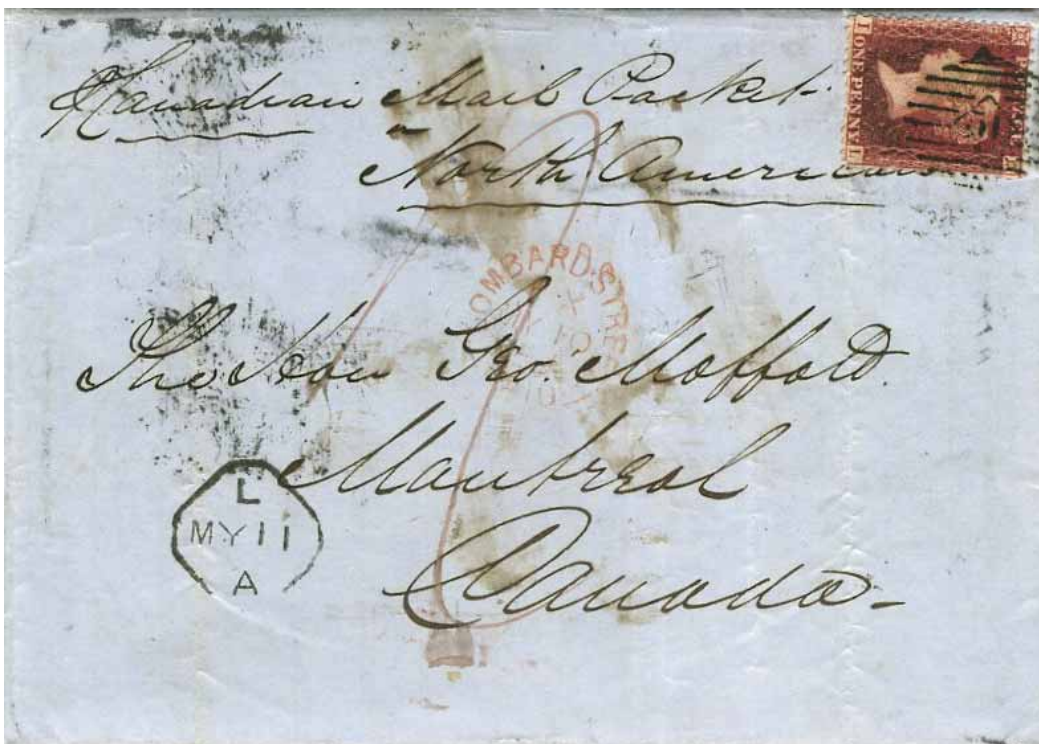 Canadian Mail Packet.
North American
ONE PENNY
LOMBARD·STREET
10
The Hon Geo. Moffatt.
Montreal
Canada
L
MY 11
A